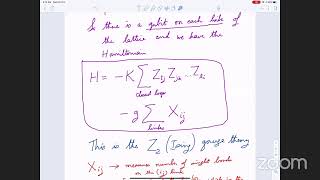 So there is a qubit on each link of
the lattice and we have the
Hamiltonian
H = -K ∑ Z_ij Z_jk .. Z_li
closed loops
- g ∑ X_ij
links
This is the Z_2 (Ising) gauge theory
X_ij → measures number of
on the (ij) link
zoom